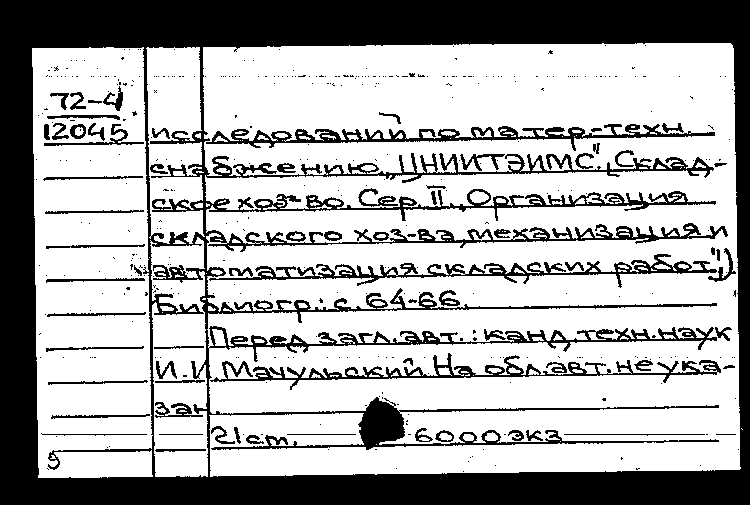 72-4
12045 исследований по матер.-техн.
снабжению „ЦНИИТЭИМС". „Склад-
ское хоз-во. Сер. II. „Организация
складского хоз-ва, механизация и
автоматизация складских работ";)
Библиогр.: с. 64-66.
Перед загл. авт.: канд. техн. наук
И.И. Мачульский. На обл. авт. не ука-
зан.
21 cm. 6000 экз
5